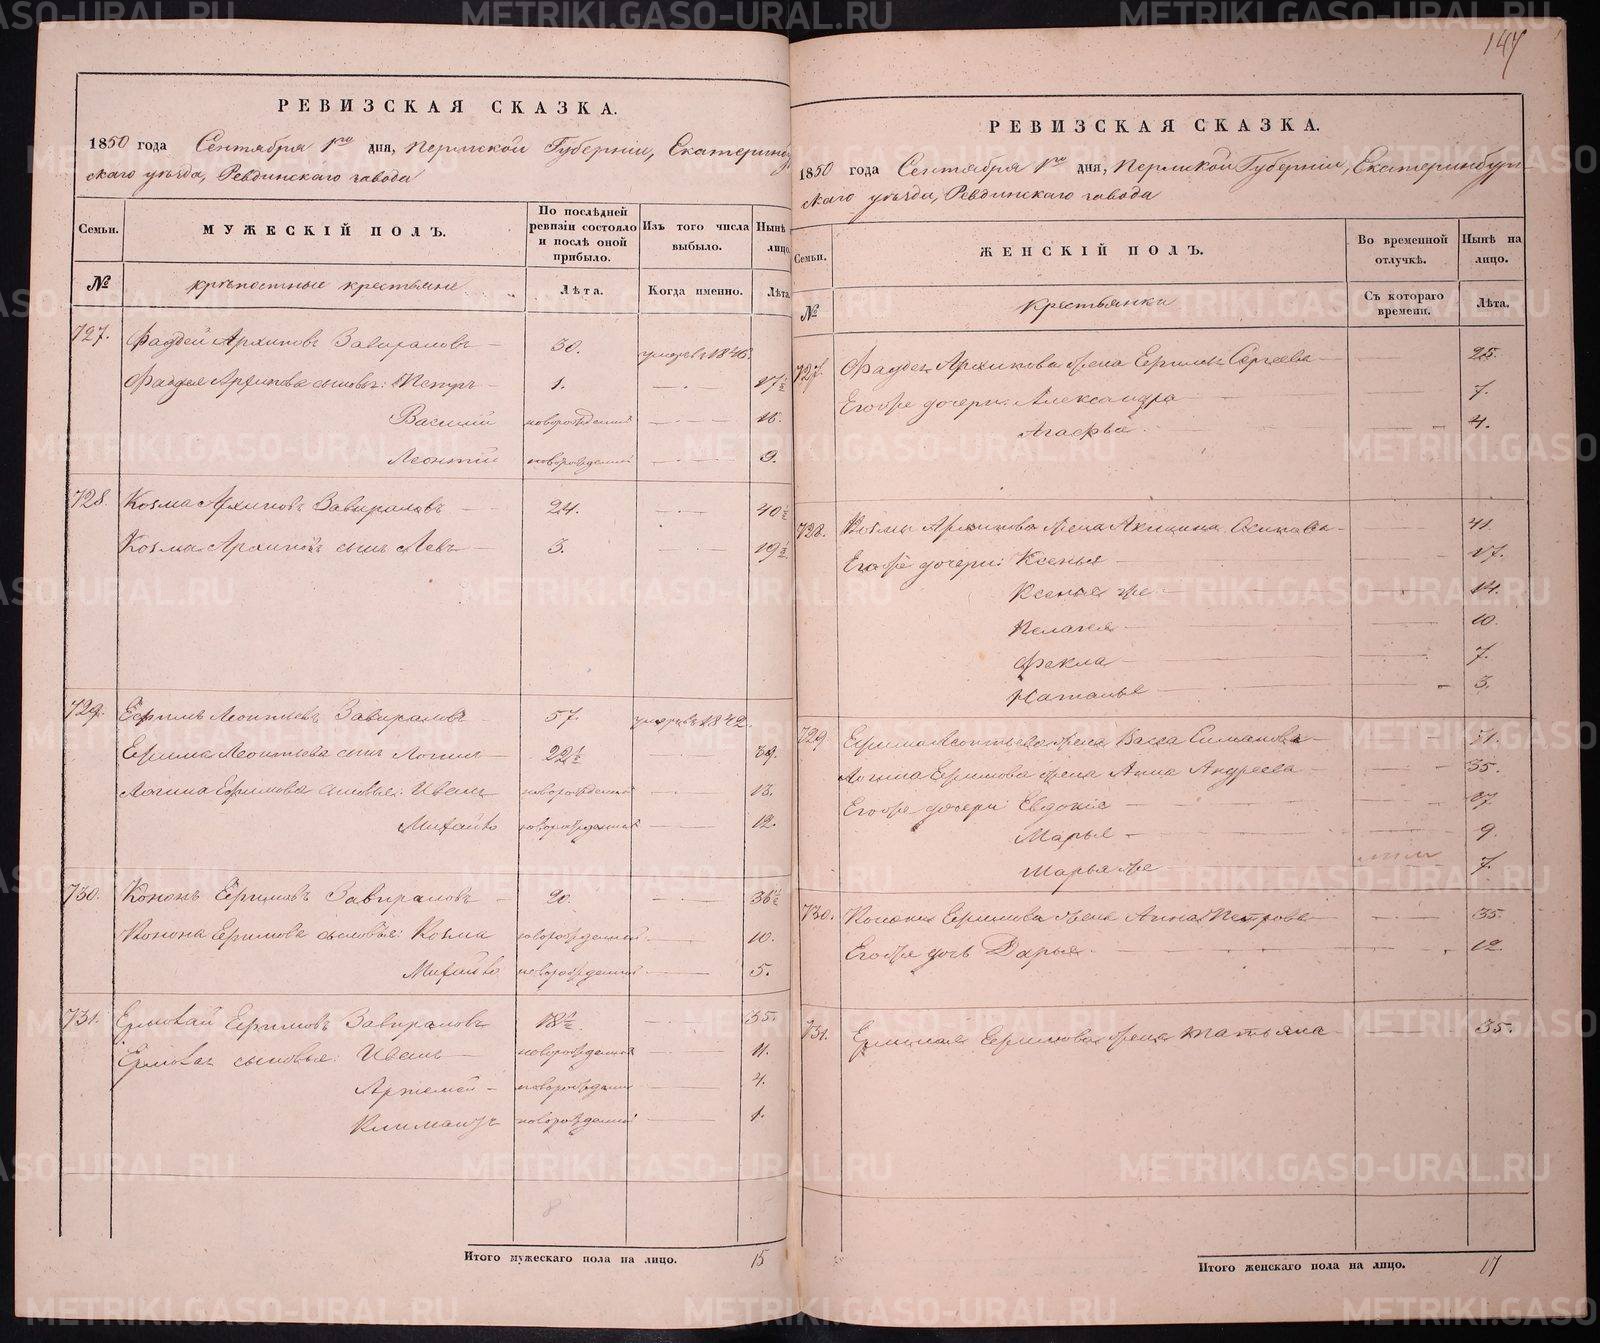 147
РЕВИЗСКАЯ СКАЗКА.
1850 года Сентября 1го дня, Пермской Губернии, Екатеринбур
скаго уѣзда, Ревдинскаго завода
Семьи.
МУЖЕСКІЙ ПОЛЪ.
По послѣдней ревизіи состояло и послѣ оной прибыло.
Изъ того числа выбыло.
Нынѣ лицо.
№
крѣпостные крестьяне
Лѣта.
Когда именно.
Лѣта.
727. Фаддей Архиповъ Завираловъ 30. умеръ 1846.
Фаддея Архипова сыновья: Петръ 1. 17½
Василий новорожденный
Леонтий новорожденный 9.
728. Козма Архиповъ Завираловъ 24. 40½
Козмы Архипова сынъ Левъ 3. 19½
729. Ефимъ Леонтьевъ Завираловъ 57. умеръ 1842.
Ефима Леонтьева сынъ Логинъ 22½ 39.
Логина Ефимова сыновья: Иванъ новорожденный 13.
Михайло новорожденный 12.
730. Кононъ Ефимовъ Завираловъ 20. 36½
Конона Ефимова сыновья: Козма новорожденный 10.
Михайло новорожденный 5.
731. Ермолай Ефимовъ Завираловъ 18½. 35.
Ермолая сыновья: Иванъ новорожденный 11.
Артемей новорожденный 4.
Климантъ новорожденный 1.
Итого мужескаго пола на лицо. 15
РЕВИЗСКАЯ СКАЗКА.
1850 года Сентября 1го дня, Пермской Губернии, Екатеринбур
скаго уѣзда, Ревдинскаго завода
Семьи.
ЖЕНСКІЙ ПОЛЪ.
Во временной отлучкѣ.
Нынѣ на лицо.
№
Крестьянки
Съ котораго времени.
Лѣта.
727. Фаддея Архипова жена Сергеева 25.
Егоже дочери: Александра 7.
Агафья 4.
728. Козмы Архипова жена Акилина Осипова 41.
Егоже дочери: Ксенья 17.
Ксенья же 14.
Пелагея 10.
Фекла 7.
Наталья 3.
729 Ефима Леонтьева жена Васса Симанова 51.
Логина Ефимова жена Анна Андреева 35.
Егоже дочери: Евдокия 17
Марья 9
Марья же 7.
730. Конона Ефимова жена Анна Петрова 35.
Егоже дочь Дарья 12.
731. Ермолая Ефимова жена Татьяна 35.
Итого женскаго пола на лицо. 17
METRIKI.GASO-URAL.RU